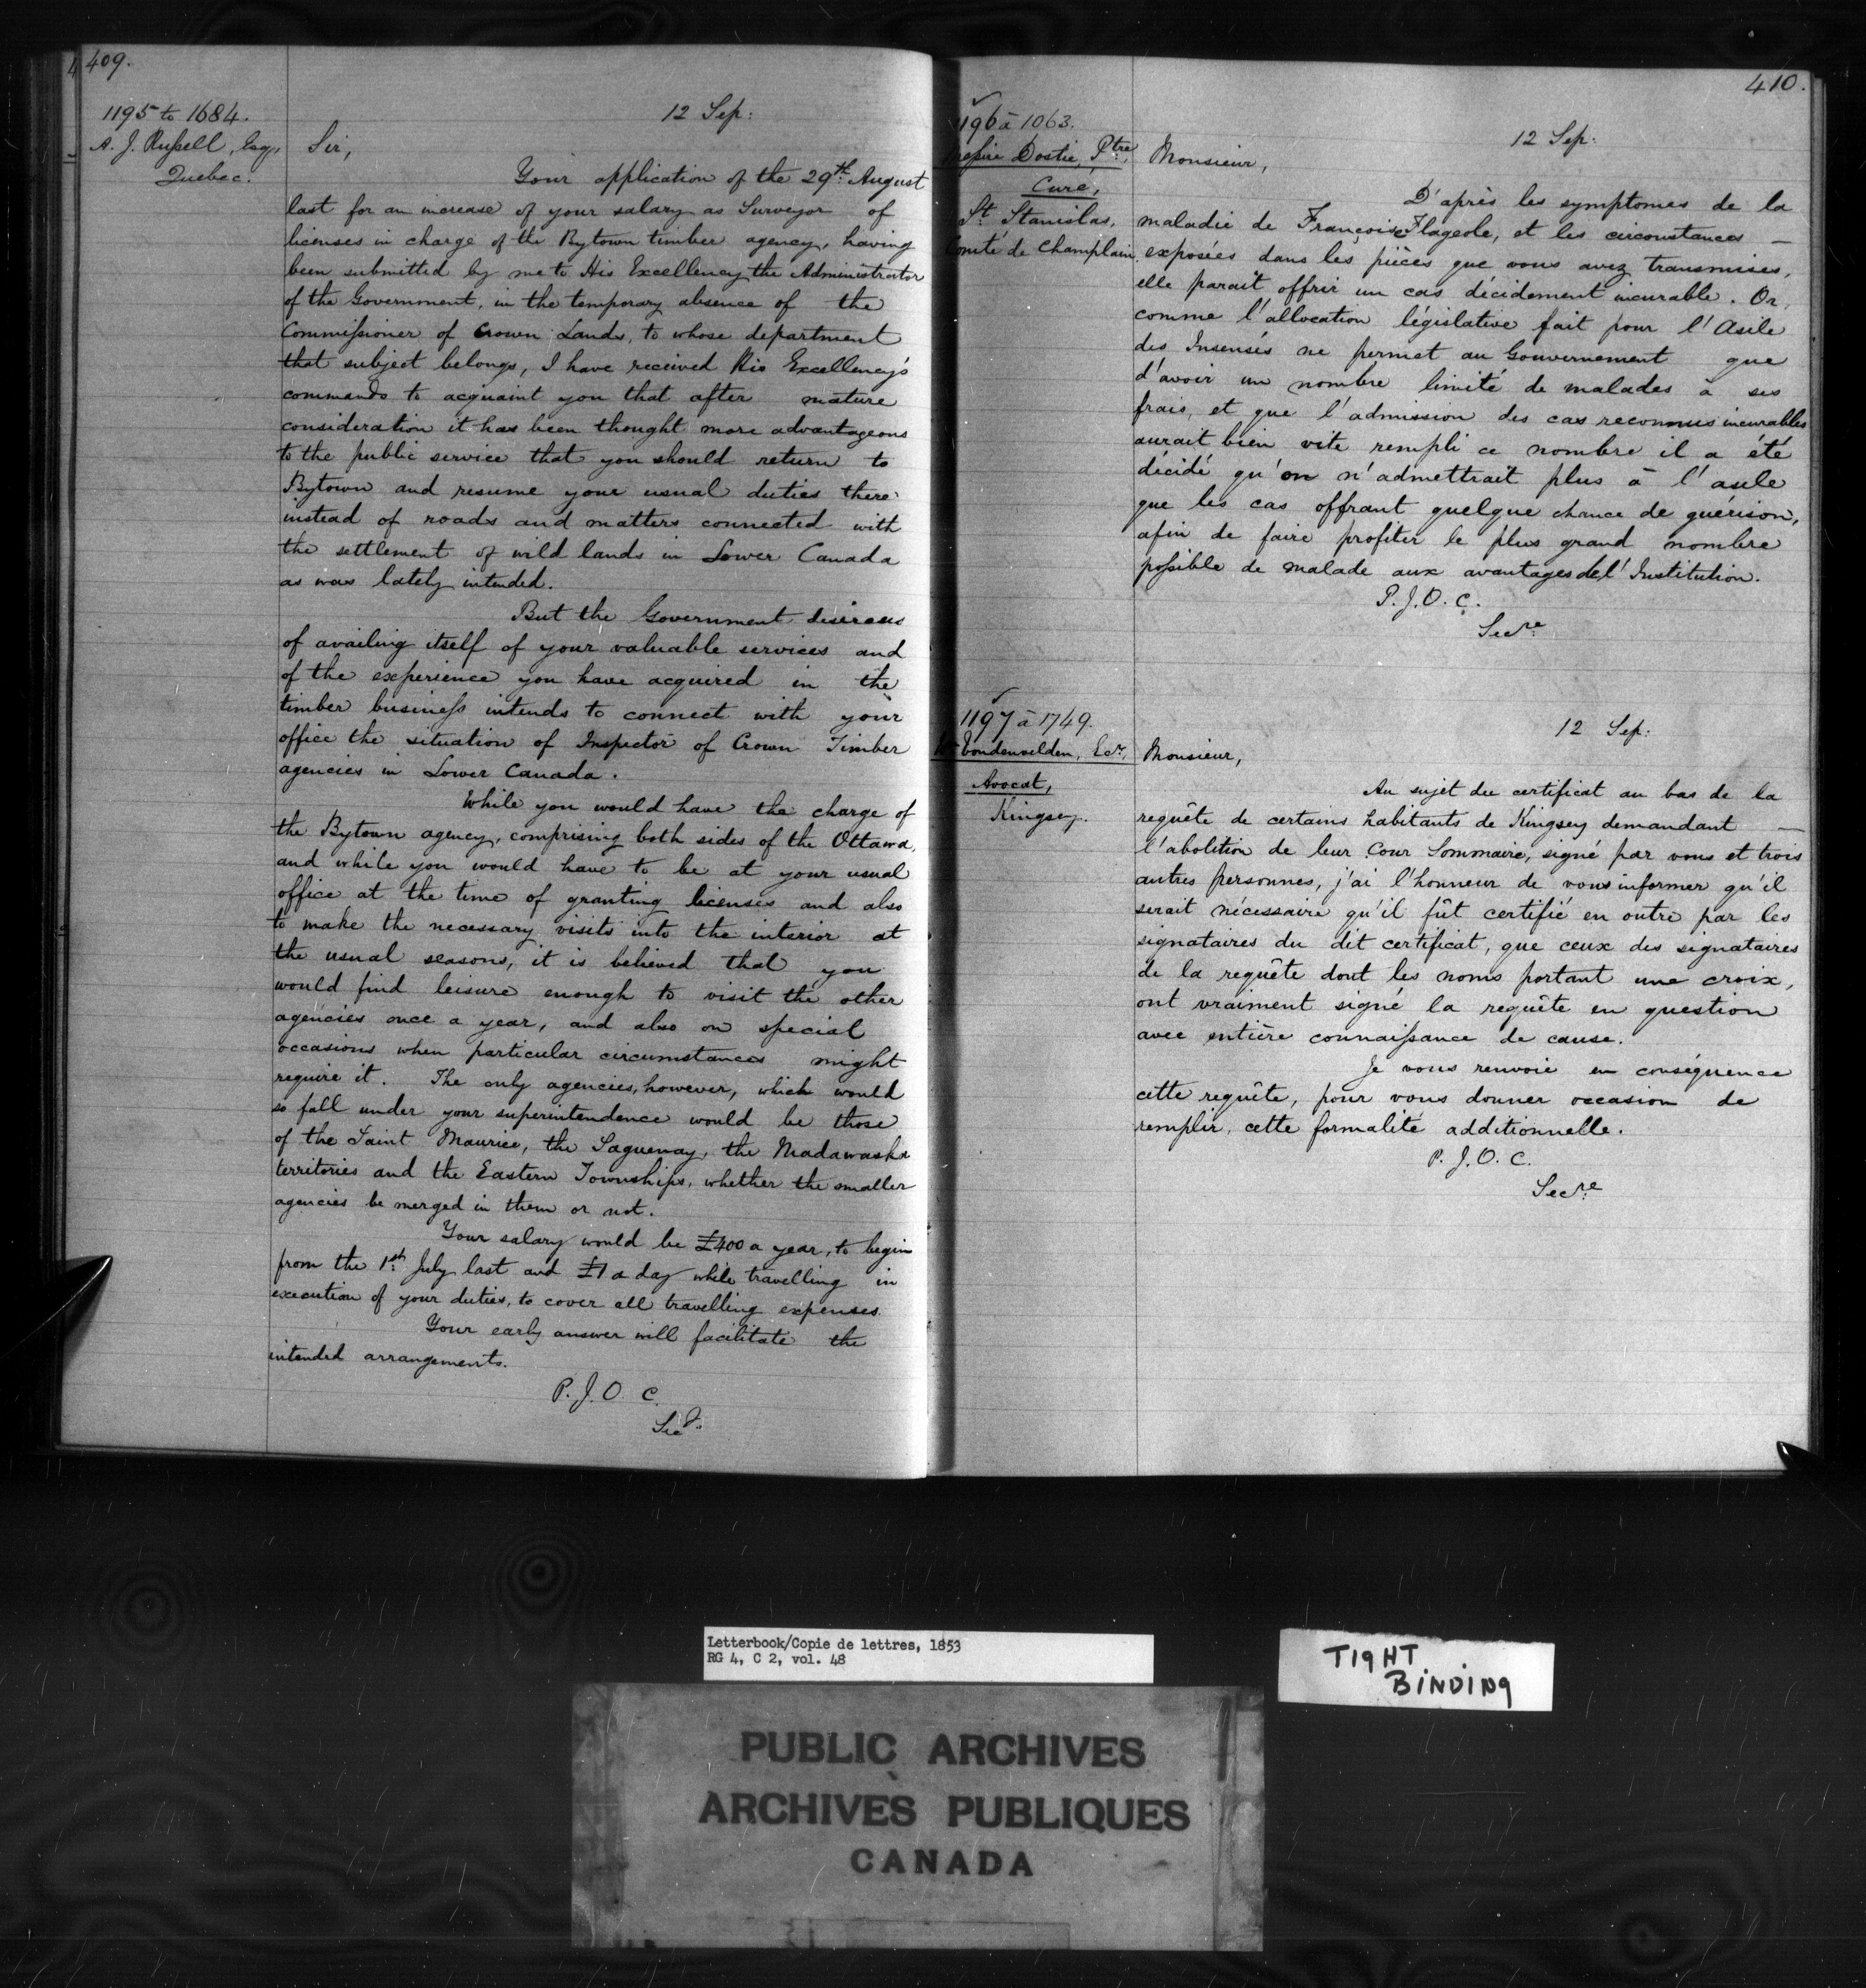 409.
1195 to 1684.
A. J. Russell, Esq,
Quebec.
12 Sep:
Sir,
Your application of the 29th August
last for an increase of your salary as Surveyor of
licenses in charge of the Bytown timber agency, having
been submitted by me to His Excellency the Administrator
of the Government, in the temporary absence of the
Commissioner of Crown Lands, to whose department
that subject belongs, I have received His Excellency's
commands to acquaint you that after mature
consideration it has been thought more advantageous
to the public service that you should return to
Bytown and resume your usual duties there
instead of roads and matters connected with
the settlement of wild lands in Lower Canada
as was lately intended.
But the Government desirous
of availing itself of your valuable services and
of the experience you have acquired in the
timber business intends to connect with your
office the situation of Inspector of Crown Timber
agencies in Lower Canada.
While you would have the charge of
the Bytown agency, comprising both sides of the Ottawa,
and while you would have to be at your usual
office at the time of granting licenses and also
to make the necessary visits into the interior at
the usual seasons, it is believed that you
would find leisure enough to visit the other
agencies once a year, and also on special
occasions when particular circumstances might
require it. The only agencies, however, which would
so fall under your superintendence would be those
of the Saint Maurice, the Saguenay, the Madawaska
territories and the Eastern Townships, whether the smaller
agencies be merged in them or not.
Your salary would be £400 a year, to begin
from the 1st July last and £1 a day while travelling in
execution of your duties, to cover all travelling expenses.
Your early answer will facilitate the
intended arrangements.
P. J. O. C.
Secy.
410.
1196 à 1063.
Messire Dostie, Ptre,
Curé,
St Stanislas,
Comté de Champlain
12 Sep:
Monsieur,
D'après les symptomes de la
maladie de Françoise Flageole, et les circonstances —
exposées dans les pièces que vous avez transmises,
elle parait offrir un cas décidement incurable. Or,
comme l'allocation législative fait pour l'Asile
des Insensés ne permet au Gouvernement que
d'avoir un nombre limité de malades à ses
frais, et que l'admission des cas reconnus incurables
aurait bien vite rempli ce nombre il a été
décidé qu'on n'admettrait plus à l'asile
que les cas offrant quelque chance de guérison,
afin de faire profiter le plus grand nombre
possible de malade aux avantages de l'Institution.
P. J. O. C.
Secre
1197 à 1749.
Vondenvelden, Ecr,
Avocat,
Kingsey.
12 Sep:
Monsieur,
Au sujet du certificat au bas de la
requête de certains habitants de Kingsey demandant —
l'abolition de leur Cour Sommaire, signé par vous et trois
autres personnes, j'ai l'honneur de vous informer qu'il
serait nécessaire qu'il fût certifié en outre par les
signataires du dit certificat, que ceux des signataires
de la requête dont les noms portant une croix,
ont vraiment signé la requête en question
avec entière connaissance de cause.
Je vous renvoie en conséquence
cette requête, pour vous donner occasion de
remplir, cette formalité additionnelle.
P. J. O. C.
Secre
Letterbook/Copie de lettres, 1853
RG 4, C 2, vol. 48
TIGHT
BINDING
PUBLIC ARCHIVES
ARCHIVES PUBLIQUES
CANADA